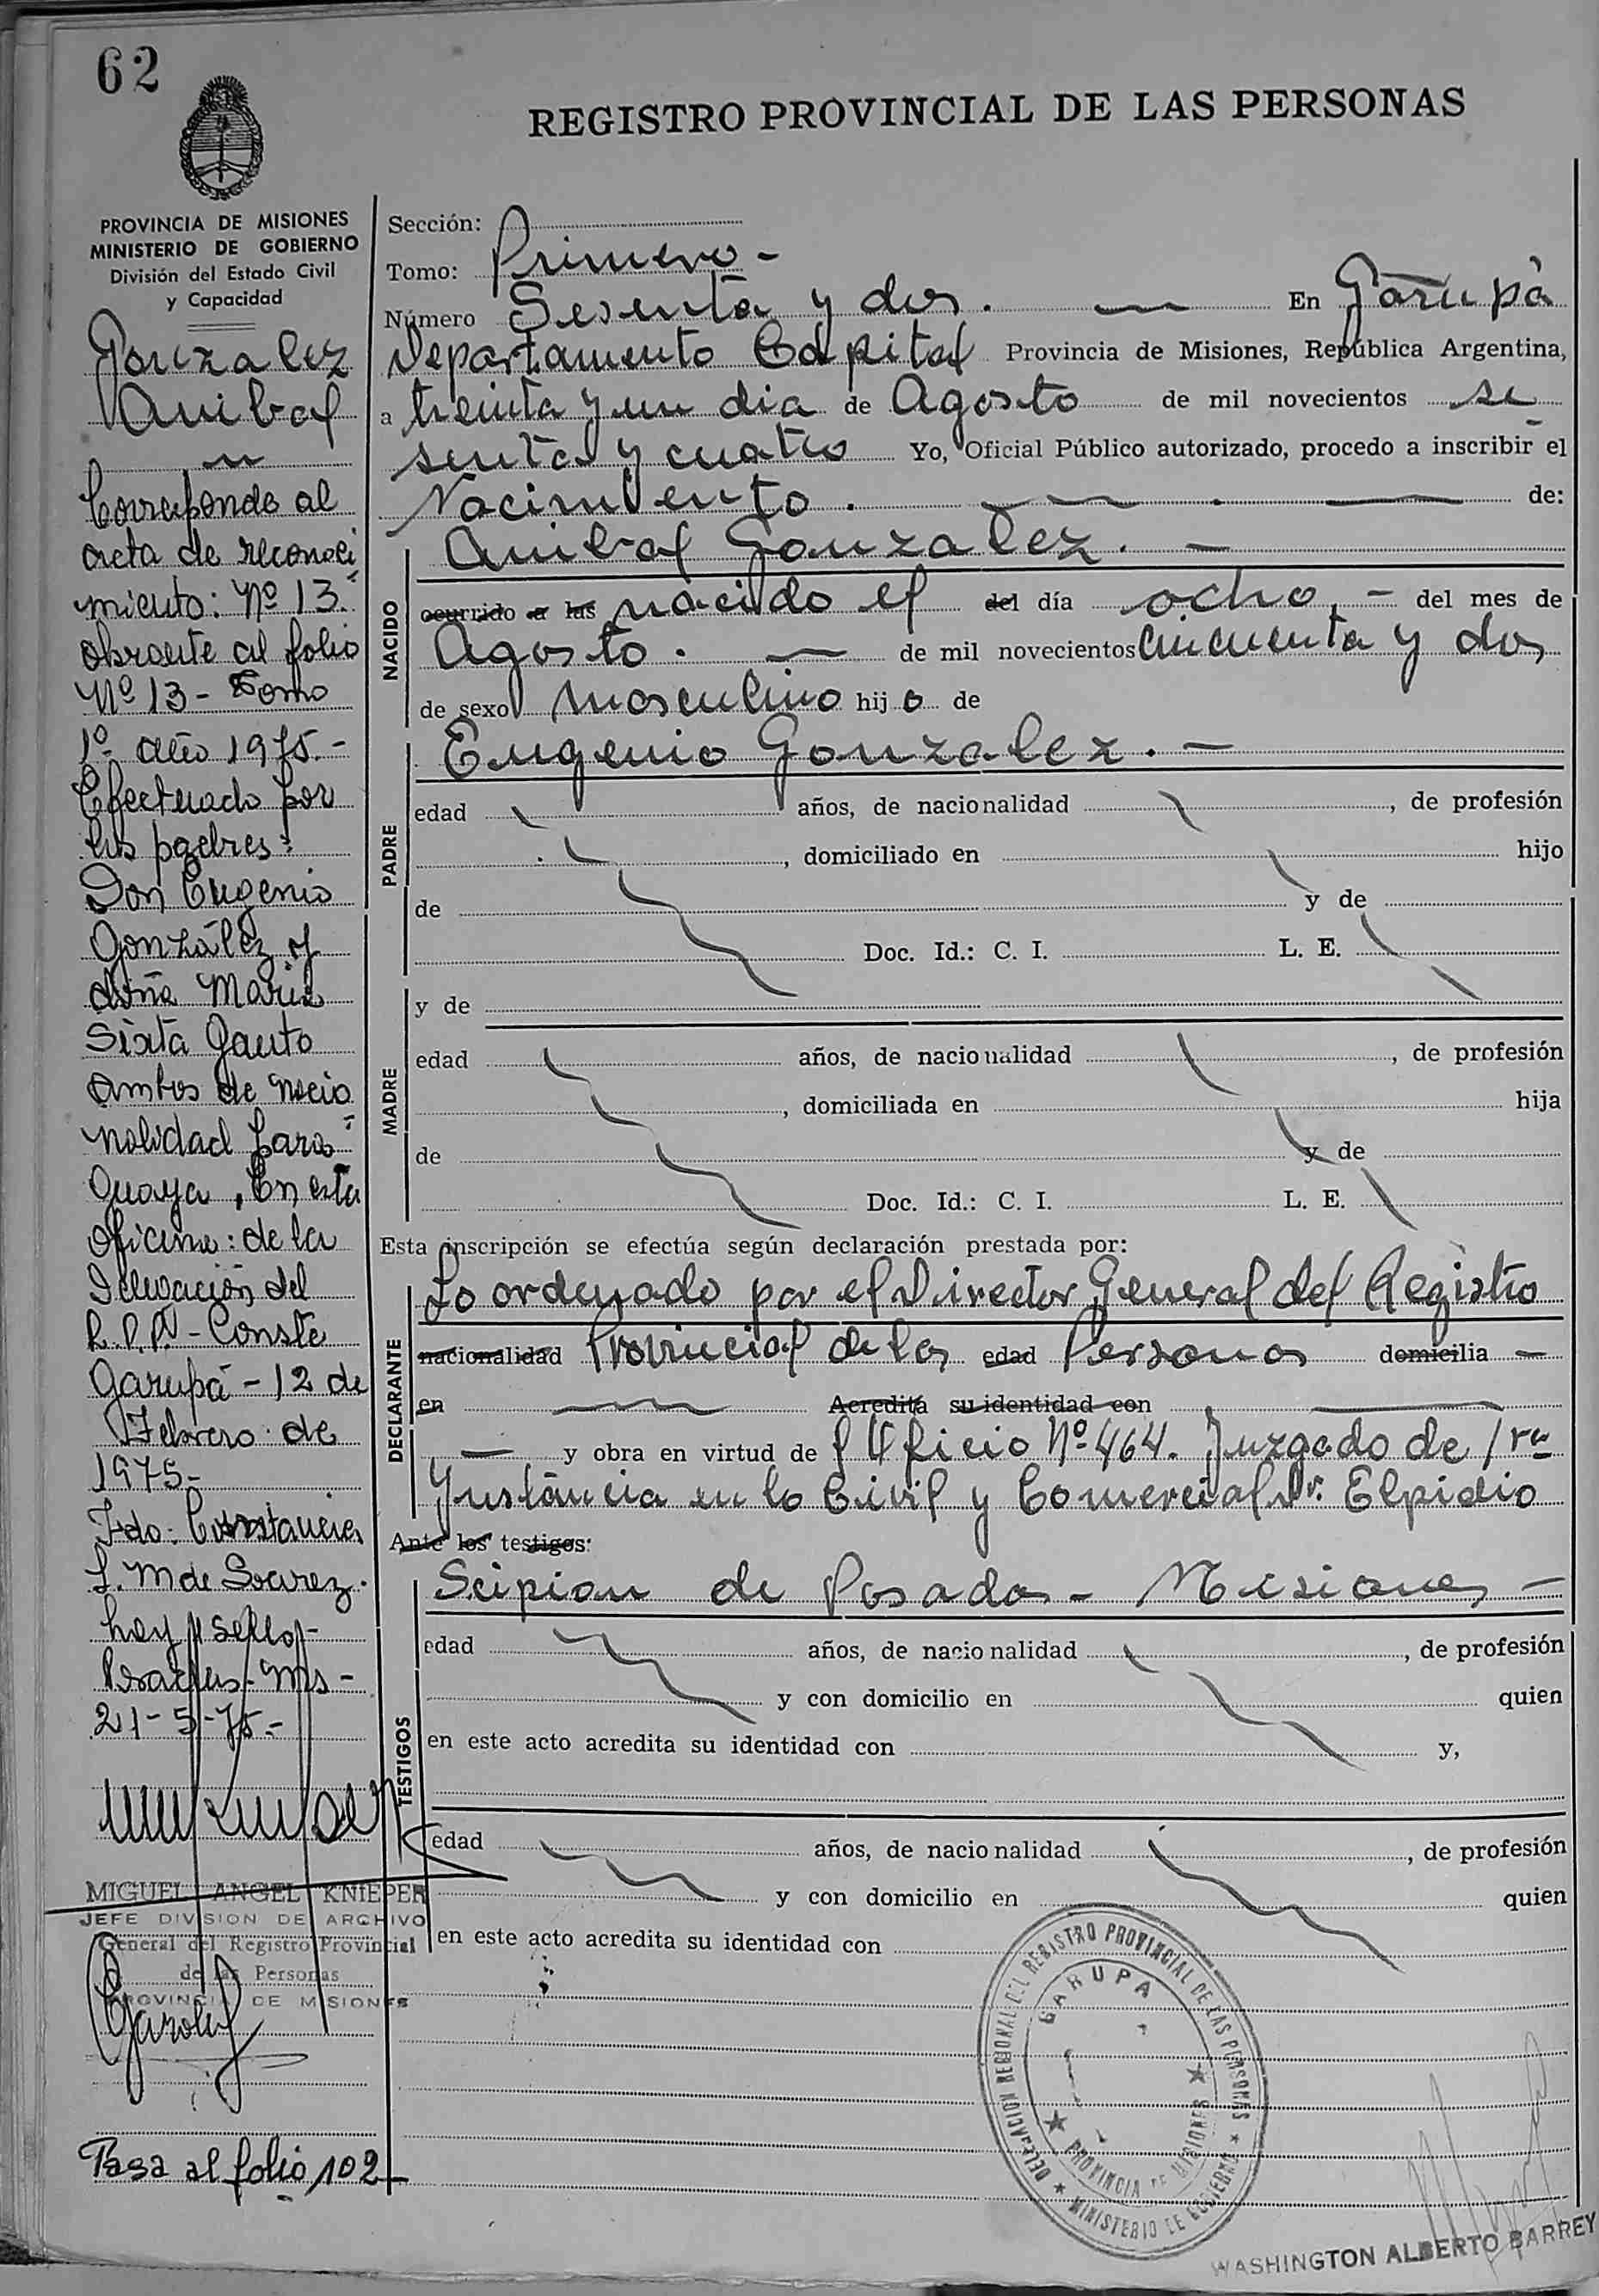 62
REGISTRO PROVINCIAL DE LAS PERSONAS
PROVINCIA DE MISIONES
MINISTERIO DE GOBIERNO
División del Estado Civil
y Capacidad
Gonzalez
Anibal
Corresponde al
acta de reconoci
miento: Nº 13.
obrante al folio
Nº 13 - Tomo
1º año 1975.-
Efectuado por
los padres:
Don Eugenio
González y
doña Maria
Sixta Gauto
ambos de nacio
nalidad para
guaya, En esta
oficina: de la
Delegación del
R.P.P. - Conste
Garupá - 12 de
Febrero de
1975.-
Fdo: Constancia
L. M de Suarez.
hay sello -
Posadas - Mns -
21-5-75.-
MIGUEL ANGEL KNIEPER
JEFE DIVISION DE ARCHIVO
General del Registro Provincial
de las Personas
PROVINCIA DE MISIONES
Pasa al folio 102
Sección:
Tomo: Primero -
Número Sesenta y dos. — En Garupá
Departamento Capital Provincia de Misiones, República Argentina,
a treinta y un dia de Agosto de mil novecientos se
senta y cuatro Yo, Oficial Público autorizado, procedo a inscribir el
Nacimiento. — de:
NACIDO
Anibal Gonzalez. -
ocurrido a las nacido el del día ocho, - del mes de
Agosto. — de mil novecientos cincuenta y dos
de sexo masculino hijo de
PADRE
Eugenio Gonzalez. -
edad años, de nacionalidad , de profesión
, domiciliado en hijo
de y de
Doc. Id.: C. I. L. E.
y de
MADRE
edad años, de nacionalidad , de profesión
, domiciliada en hija
de y de
Doc. Id.: C. I. L. E.
Esta inscripción se efectúa según declaración prestada por:
DECLARANTE
Lo ordenado por el Director General del Registro
nacionalidad Provincial de las edad Personas domicilia —
en — Acredita su identidad con —
— y obra en virtud de Oficio Nº 464. Juzgado de 1ra
Instancia en lo Civil y Comercial Dr. Elpidio
Ante los testigos:
TESTIGOS
Scipion de Posadas - Misiones -
edad años, de nacionalidad , de profesión
y con domicilio en quien
en este acto acredita su identidad con y,
edad años, de nacionalidad , de profesión
y con domicilio en quien
en este acto acredita su identidad con
DELEGACION REGIONAL DEL REGISTRO PROVINCIAL DE LAS PERSONAS
GARUPA
PROVINCIA DE MISIONES
MINISTERIO DE GOBIERNO
WASHINGTON ALBERTO BARREY